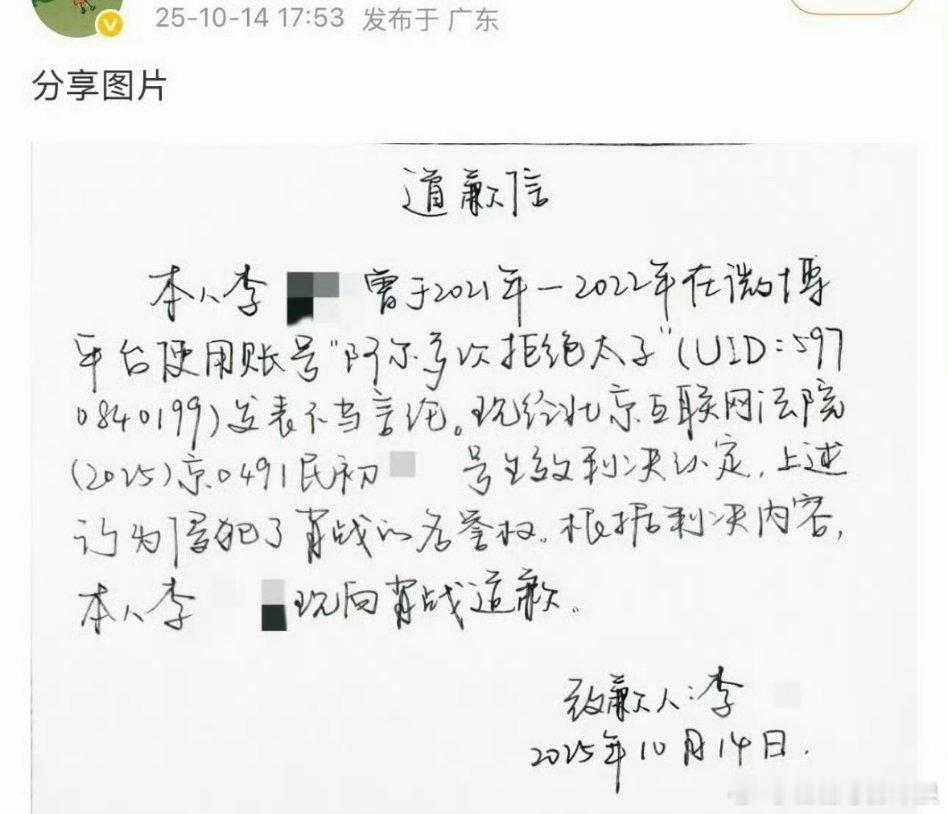 25-10-14 17:53 发布于 广东
分享图片
道歉信
本人李 曾于2021年-2022年在微博
平台使用账号"阿尔多次拒绝太子"(UID:597
0840199)发表不当言论。现经北京互联网法院
(2025)京0491民初 号生效判决认定,上述
行为侵犯了肖战的名誉权。根据判决内容,
本人李 现向肖战道歉。
致歉人:李
2025年10月14日.